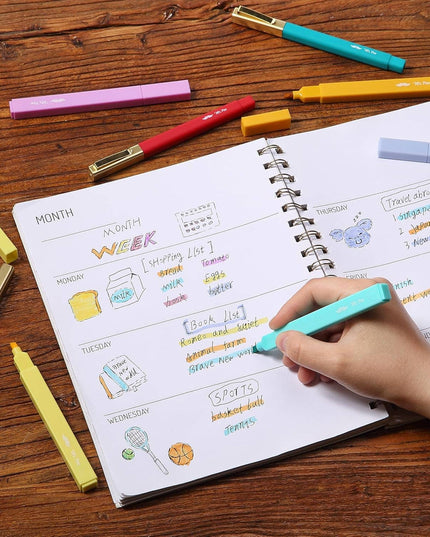 MONTH
MONTH
WEEK
MONDAY
[SHOPPING LIST]
Bread Tomato
milk Eggs
butter
milk
TUESDAY
Book List
Romeo and Juliet
Animal farm
Brave New
Brave new
WEDNESDAY
SPORTS
basket ball
Tennis
THURSDAY
Travel abro
1. Singap
2. Japa
3. New
FRIDAY